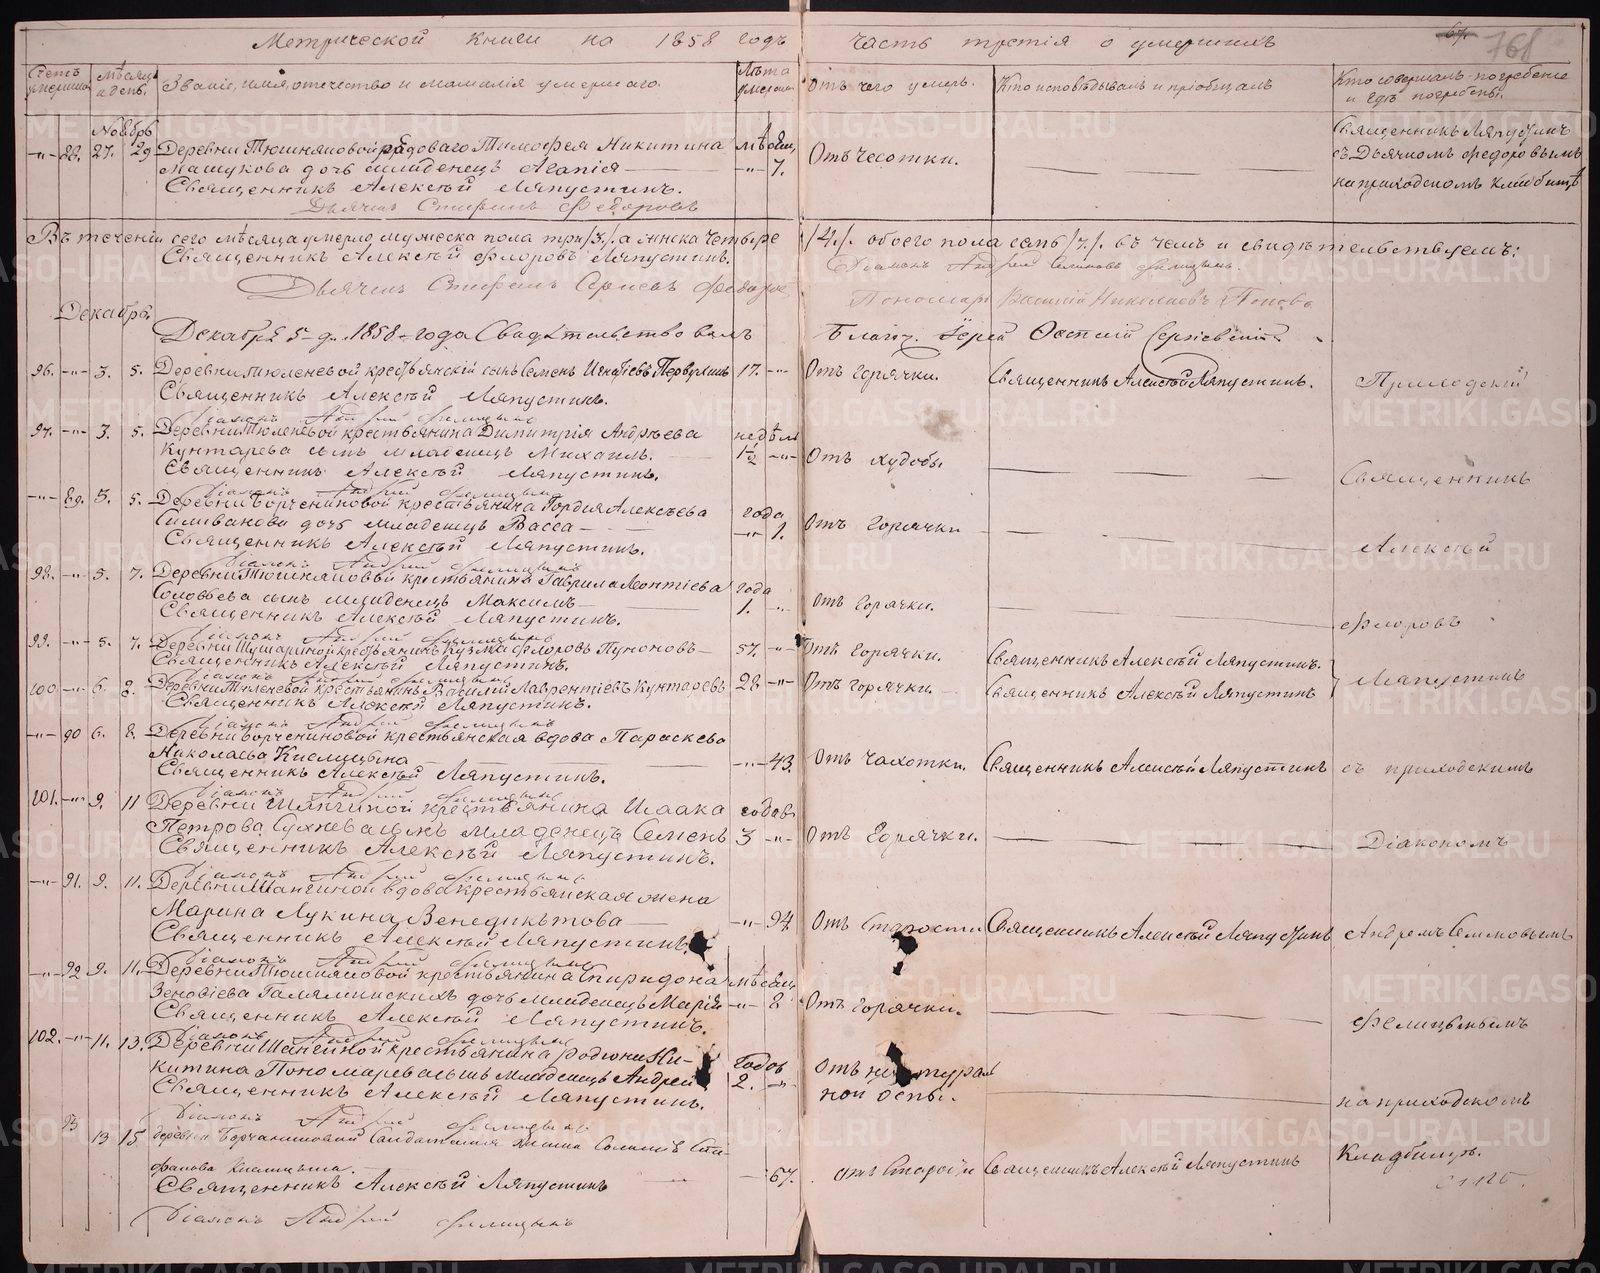 Метрической книги на 1858 годъ часть третія о умершихъ
67. 761
Счетъ умершихъ
Мѣсяцъ и день.
Званіе, имя, отчество и фамилія умершаго.
Лѣта умершихъ
Отъ чего умеръ.
Кто исповѣдывалъ и пріобщалъ
Кто совершалъ погребеніе и гдѣ погребены.
Ноябрь
-"- 88. 27. 29 Деревни Тюшняковой рядоваго Тимофея Никитина мѣсяц.
Машукова дочь младенецъ Агапія -"- 7. Отъ чесотки.
Священникъ Алексѣй Ляпустинъ.
Дьячекъ Стефанъ Федоровъ
Священникъ Ляпустинъ
съ Дьячкомъ Федоровымъ
на приходскомъ кладбищѣ
Въ теченіи сего мѣсяца умерло мужеска пола три /3./ а женска четыре /4./ обоего пола семь /7./ въ чемъ и свидѣтельствуемъ:
Священникъ Алексѣй Флоровъ Ляпустинъ. Діаконъ Андрей Симоновъ Фелицынъ.
Дьячекъ Стефанъ Федоровъ Пономарь Василій Николаевъ Поповъ
Декабрь
Декабря 5 д. 1858 года Свидѣтельствовалъ Благоч. Іерей Сергіевскій
96. -"- 3. 5. Деревни Тюленевой крестьянскій сынъ Семенъ Игнатіевъ Первушинъ 17. -"- Отъ горячки. Священникъ Алексѣй Ляпустинъ. Приходскій
Священникъ Алексѣй Ляпустинъ.
Діаконъ Андрей Фелицынъ
97. -"- 3. 5. Деревни Тюленевой крестьянина Димитрія Андреева недѣль
Кунгарева сынъ младенецъ Михаилъ. 1½ -"- Отъ худобы
Священникъ Алексѣй Ляпустинъ. Священникъ
Діаконъ Андрей Фелицынъ
-"- 89. 3. 5. Деревни Борчениновой крестьянина Гордея Алексѣева года
Силиванова дочь младенецъ Васса -"- 1. Отъ горячки
Священникъ Алексѣй Ляпустинъ. Алексѣй
Діаконъ Андрей Фелицынъ
98. -"- 5. 7. Деревни Тюшняковой крестьянина Гаврила Леонтіева года
Соловьева сынъ младенецъ Максимъ 1. -"- Отъ горячки.
Священникъ Алексѣй Ляпустинъ. Флоровъ
Діаконъ Андрей Фелицынъ
99. -"- 5. 7. крестьянинъ Кузма Флоровъ 57. -"- Отъ горячки. Священникъ Алексѣй Ляпустинъ.
Священникъ Алексѣй Ляпустинъ.
Діаконъ Андрей Фелицынъ
100 -"- 6. 8. Деревни Тюленевой крестьянинъ Василій Лаврентіевъ Кунгаревъ 28 -"- Отъ горячки. Священникъ Алексѣй Ляпустинъ Ляпустинъ
Священникъ Алексѣй Ляпустинъ.
Діаконъ Андрей Фелицынъ
-"- 90 6. 8. Деревни Борчениновой крестьянская вдова Параскева
Николаева Кислицына -"- 43. Отъ чахотки. Священникъ Алексѣй Ляпустинъ съ приходскимъ
Священникъ Алексѣй Ляпустинъ.
Діаконъ Андрей Фелицынъ
101. -"- 9. 11 Деревни Шангиной крестьянина Исаака годовъ
Петрова Сухнева сынъ младенецъ Семенъ 3 -"- Отъ горячки. Діакономъ
Священникъ Алексѣй Ляпустинъ.
Діаконъ Андрей Фелицынъ
-"- 91. 9. 11. Деревни Шангиной вдова крестьянская жена
Марина Лукина Венедиктова -"- 94 Отъ старости Священникъ Алексѣй Ляпустинъ Андреемъ Симоновымъ
Священникъ Алексѣй Ляпустинъ.
Діаконъ Андрей Фелицынъ
-"- 92 9. 11. Деревни Тюшняковой крестьянина Спиридона мѣсяц.
Зеновіева Галямшиныхъ дочь младенецъ Марія -"- 8 Отъ горячки.
Священникъ Алексѣй Ляпустинъ. Фелицынымъ
Діаконъ Андрей Фелицынъ
102. -"- 11. 13. Деревни Шангиной крестьянина Родіона Ни-
китина Пономарева сынъ младенецъ Андрей годовъ 2. -"- Отъ натураль
ной оспы.
Священникъ Алексѣй Ляпустинъ. на приходскомъ
Діаконъ Андрей Фелицынъ
93 13 15 деревни Борчаниновой Солдатская жена Сте-
фанова Кислицына. -67. отъ старости Священникъ Алексѣй Ляпустинъ Кладбищѣ.
Священникъ Алексѣй Ляпустинъ
Діаконъ Андрей Фелицынъ
METRIKI.GASO-URAL.RU